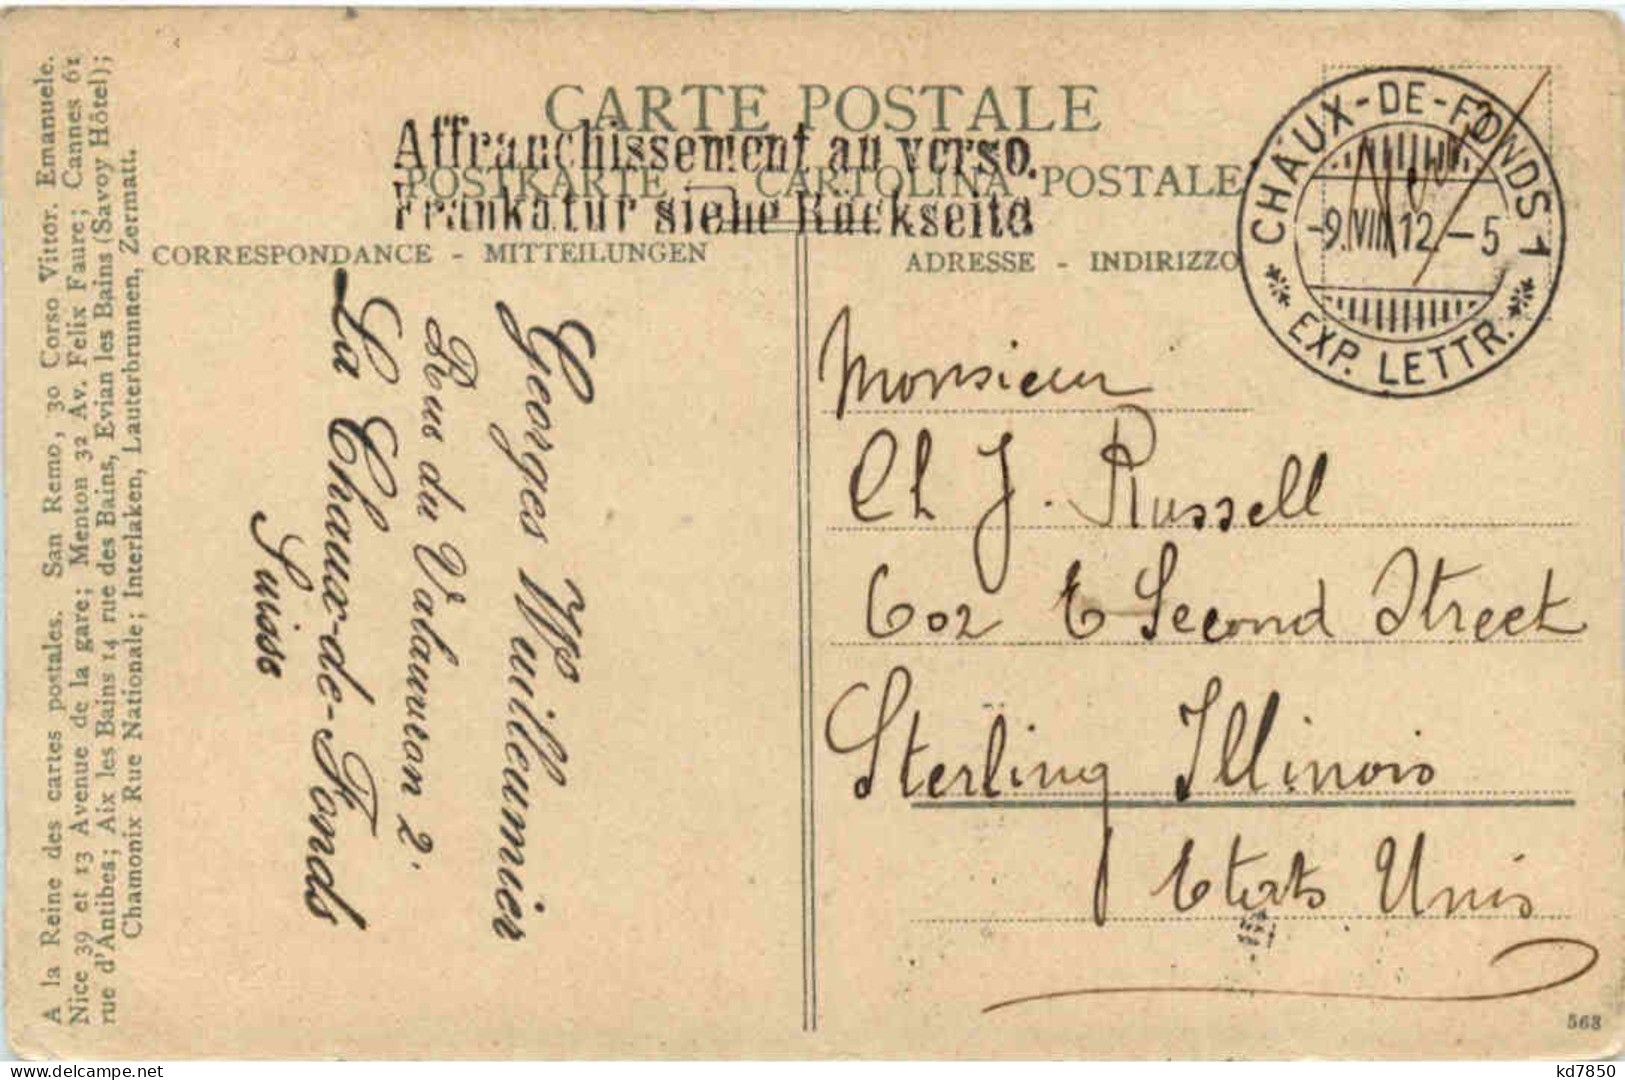 CARTE POSTALE
Affranchissement au verso.
POSTKARTE — CARTOLINA POSTALE
Frankatur siehe Rückseite
CORRESPONDANCE - MITTEILUNGEN
ADRESSE - INDIRIZZO
CHAUX-DE-FONDS 1
-9.VIII.12.-5
EXP. LETTR.
A la Reine des cartes postales. San Remo, 30 Corso Vittor. Emanuele.
Nice 39 et 13 Avenue de la gare; Menton 32 Av. Felix Faure; Cannes 61
rue d'Antibes; Aix les Bains 14 rue des Bains, Evian les Bains (Savoy Hôtel);
Chamonix Rue Nationale; Interlaken, Lauterbrunnen, Zermatt.
Georges Wuilleumier
Rue du Valanvron 2.
La Chaux-de-Fonds
Suisse
Monsieur
Ch J. Russell
602 E Second Street
Sterling Illinois
Etats Unis
568
delcampe.net
kd7850